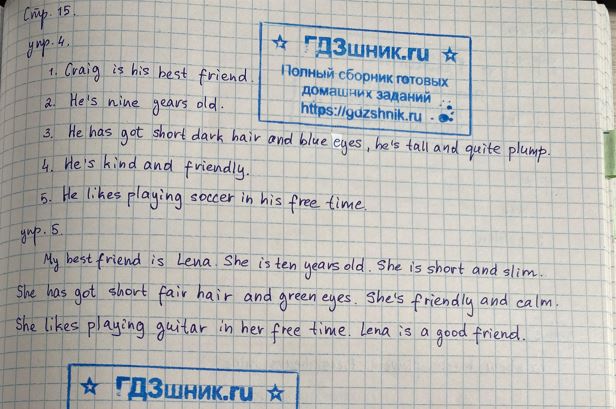 Стр. 15.
упр. 4.
☆ ГДЗшник.ru ☆
Полный сборник готовых
домашних заданий
https://gdzshnik.ru
1. Craig is his best friend.
2. He's nine years old.
3. He has got short dark hair and blue eyes, he's tall and quite plump.
4. He's kind and friendly.
5. He likes playing soccer in his free time.
упр. 5.
My best friend is Lena. She is ten years old. She is short and slim.
She has got short fair hair and green eyes. She's friendly and calm.
She likes playing guitar in her free time. Lena is a good friend.
☆ ГДЗшник.ru ☆